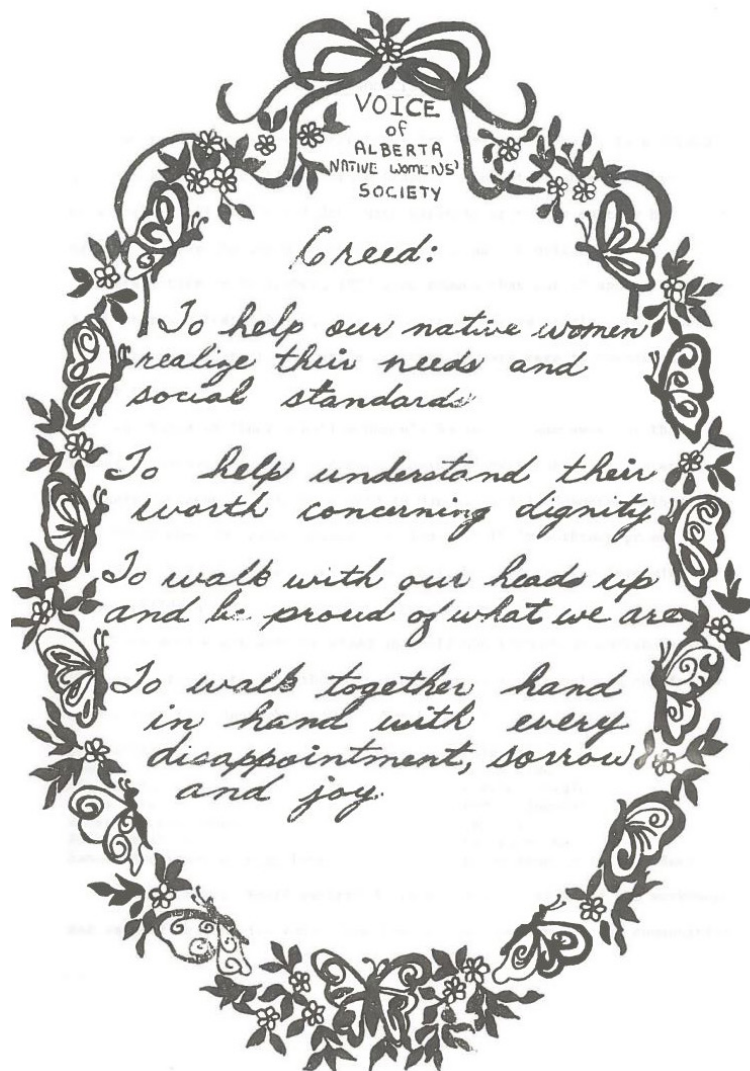 VOICE
of
ALBERTA
NATIVE WOMENS'
SOCIETY
Creed:
To help our native women
realize their needs and
social standards
To help understand their
worth concerning dignity
To walk with our heads up
and be proud of what we are
To walk together hand
in hand with every
disappointment, sorrow
and joy.